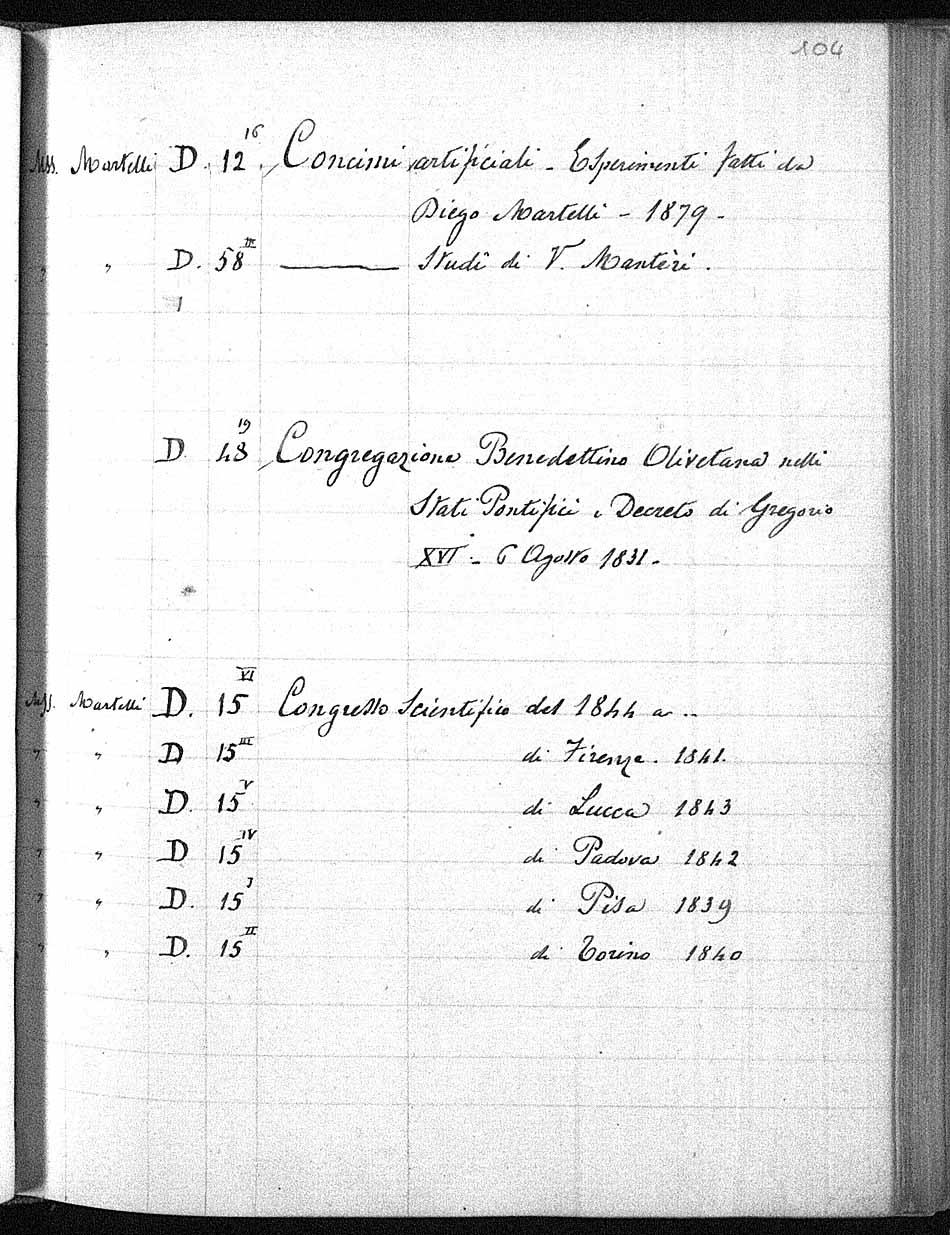 104
Mss. Martelli D. 12 16. Concimi artificiali - Esperimenti fatti da
Diego Martelli - 1879 -
" " D. 58 III ——— Studi di V. Mantèri.
D. 48 19 Congregazione Benedettino Olivetana nelli
Stati Pontifici e Decreto di Gregorio
XVI - 6 Agosto 1831.
Mss. Martelli D. 15 VI Congresso Scientifico del 1844 a ..
" " D 15 III di Firenze. 1841.
" " D. 15 V di Lucca 1843
" " D 15 IV di Padova 1842
" " D. 15 I di Pisa 1839
" " D. 15 II di Torino 1840